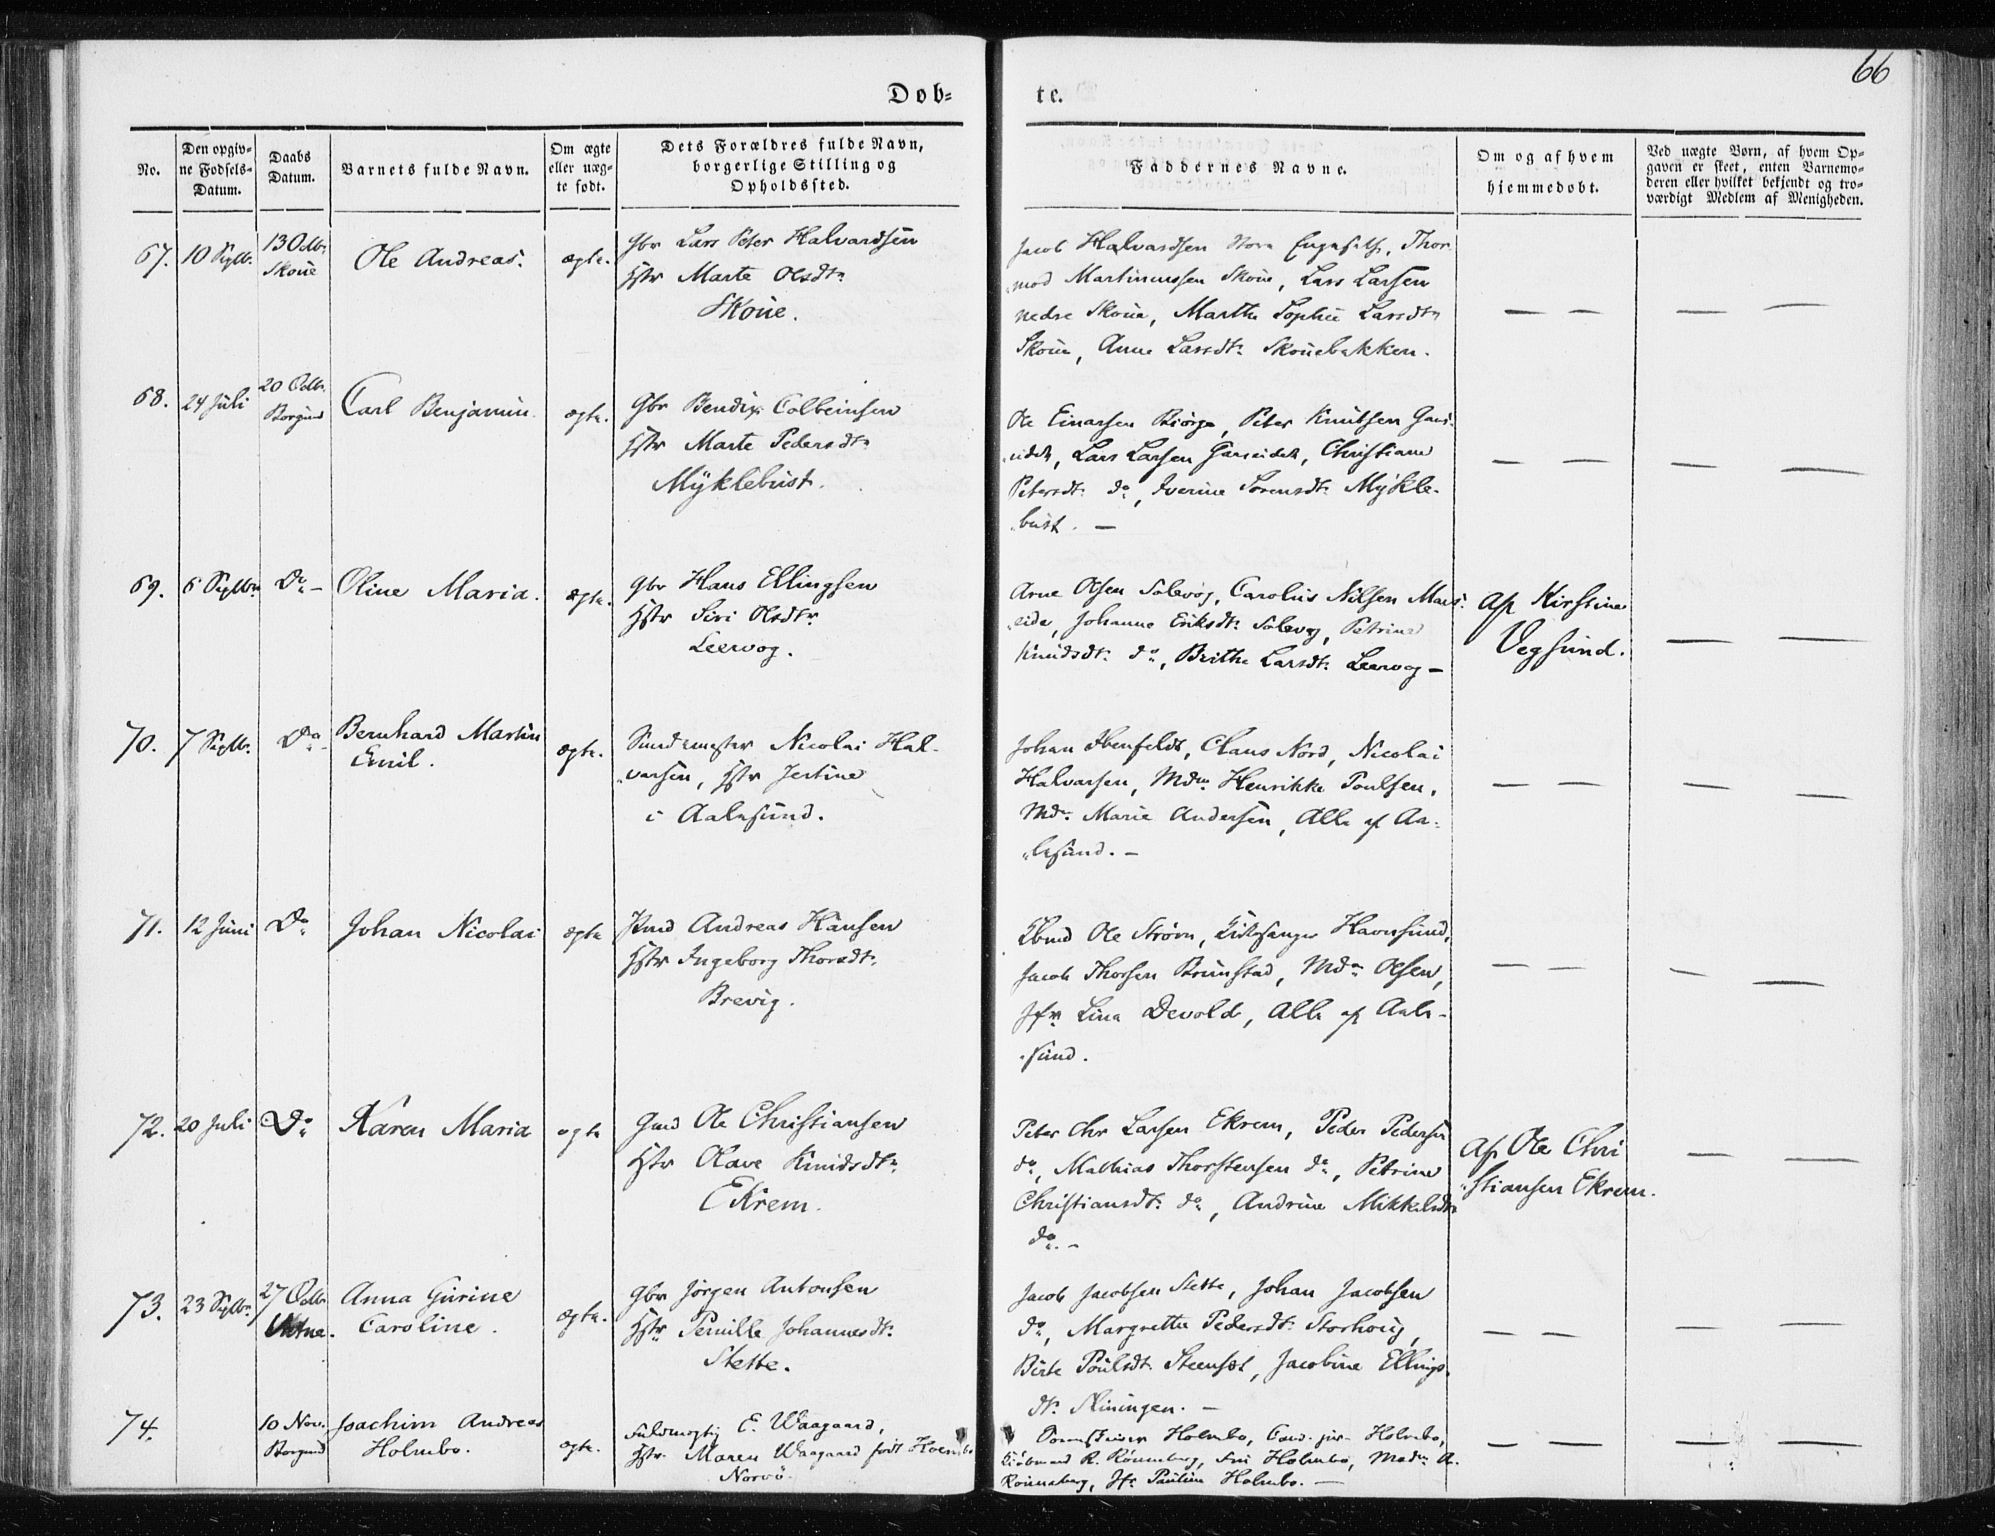 66
Døb-
te.
No.
Den opgiv-
ne Fødsels-
Datum.
Daabs
Datum.
Barnets fulde Navn.
Om ægte
eller uæg-
te født.
Dets Forældres fulde Navn,
borgerlige Stilling og
Opholdssted.
Faddernes Navne.
Om og af hvem
hjemmedøbt.
Ved uægte Børn, af hvem Op-
gaven er skeet, enten Barnemo-
deren eller hvilket bekjendt og tro-
værdigt Medlem af Menigheden.
67.
10 Septb.
13 Octbr.
Skoue
Ole Andreas.
ægte.
Gbr Lars Peter Halvardsen
Hstr Marte Olsdtr
Skoue.
Jacob Halvardsen Store Engesæth, Thor-
mod Martinussen Skoue, Lars Larsen
nedre Skoue, Marthe Sophie Larsdtr
Skoue, Anne Larsdtr Skouebakken.
— — — —
68.
24 Juli
20 Octbr.
Borgund
Carl Benjamin.
ægte.
Gbr Bendix Colbeinsen
Hstr Marte Pedersdtr
Myklebust.
Ole Einarsen Biørge, Peter Knutsen Gaus-
eidet, Lars Larsen Gauseidet, Christiane
Petersdtr do, Iverine Sorensdtr Mykle-
bust. —
— — — —
69.
6 Septbr.
Do –
Oline Maria.
ægte.
Gbr Hans Ellingsen
Hstr Siri Olsdtr
Leervog.
Arne Olsen Solevog, Carolus Nilsen Maus-
eide, Johanne Eriksdtr Solevog, Petrine
Knudsdtr do, Brithe Larsdtr Leervog —
Af Kirstine
Vegsund.
— —
70.
7 Septbr.
Do
Bernhard Martin
Emil.
ægte.
Nicolai Hal-
varsen, Hstr Jertine
i Aalesund.
Johan Ibenfeldt, Claus Nord, Nicolai
Halvarsen, Mdm Henrikke Poulsen,
Mdm Marie Andersen, Alle af Aa-
lesund. —
— — — —
71.
12 Juni
Do
Johan Nicolai
ægte
Pmd Andreas Hansen
Hstr Ingeborg Thorsdtr
Brevig.
Kbmd Ole Strøm, Kirkesanger Havnsund,
Jacob Thorsen Brunstad, Mdm Olsen,
Jfr Lina Devold, Alle af Aale-
sund.
— — — —
72.
20 Juli
Do
Karen Maria
ægte
Gmd Ole Christiansen
Hstr Olave Knudsdtr
Ekrem.
Peter Chr Larsen Ekrem, Peder Pedersen
do, Mathias Thorstensen do, Petrine
Christiansdtr do, Andrine Mikkelsdtr
do. –
Af Ole Chri
stiansen Ekrem.
— —
73.
23 Septbr.
27 Octbr.
Anna Gurine
Caroline.
ægte.
Gbr Jørgen Antonsen
Hstr Pernille Johannesdtr
Stette.
Jacob Jacobsen Stette, Johan Jacobsen
do, Margrethe Pedersdtr Storhoug,
Birte Poulsdtr Steensæt, Jacobine Ellings-
dtr —
— — — —
74.
10 Nov.
Borgund
Joachim Andreas
Holmbo.
ægte.
Fuldmægtig E. Waagaard,
Hstr. Maren Waagaard født Holmbo
Norvø.
Holmbo, Cand. jur. Holmbo,
Kiøbmand R. Rønneberg, Fru Holmbo, Madm A.
Rønneberg, Jfr Pauline Holmbo. —
— — — —